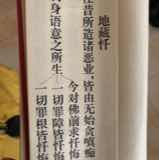 地藏忏
往昔所造诸恶业，皆由无始贪嗔痴
身语意之所生
今对佛前求忏悔
一切罪障皆忏悔
一切罪根皆忏悔